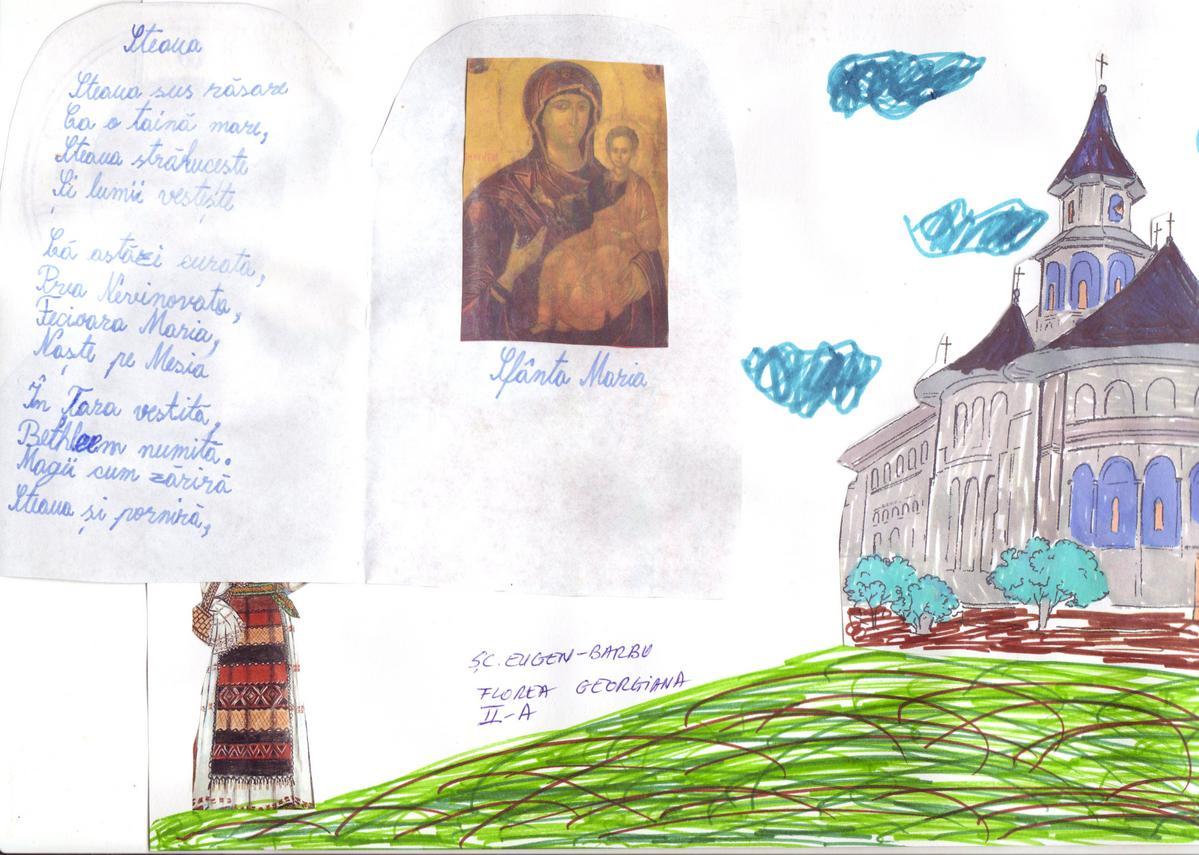 Steaua
Steaua sus răsare
Ca o taină mare,
Steaua strălucește
Și lumii vestește
Că astăzi curata,
Prea Nevinovata,
Fecioara Maria,
Naște pe Mesia
În Țara vestită,
Bethleem numită.
Magii cum zăriră
Steaua și porniră,
Sfânta Maria
ȘC. EUGEN-BARBU
FLOREA GEORGIANA
II-A